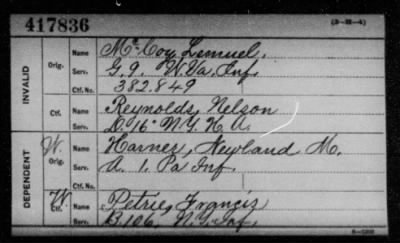 417836
(3-111-4)
INVALID
Orig. Name McCoy, Lemuel,
Serv. G. 9. W. Va. Inf.
Ctf. No. 382.849
Ctf. Name Reynolds, Nelson
Serv. D. 16" N.Y. H. A.
DEPENDENT
W. Orig. Name Harnes, Newland M.
Serv. A. 1. Pa Inf.
Ctf. No.
W. Ctf. Name Petrie, Francis
Serv. B. 106. N.Y. Inf.